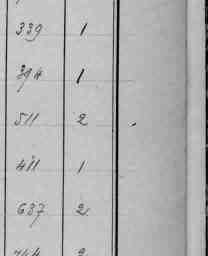 339 1
394 1
511 2
411 1
637 2